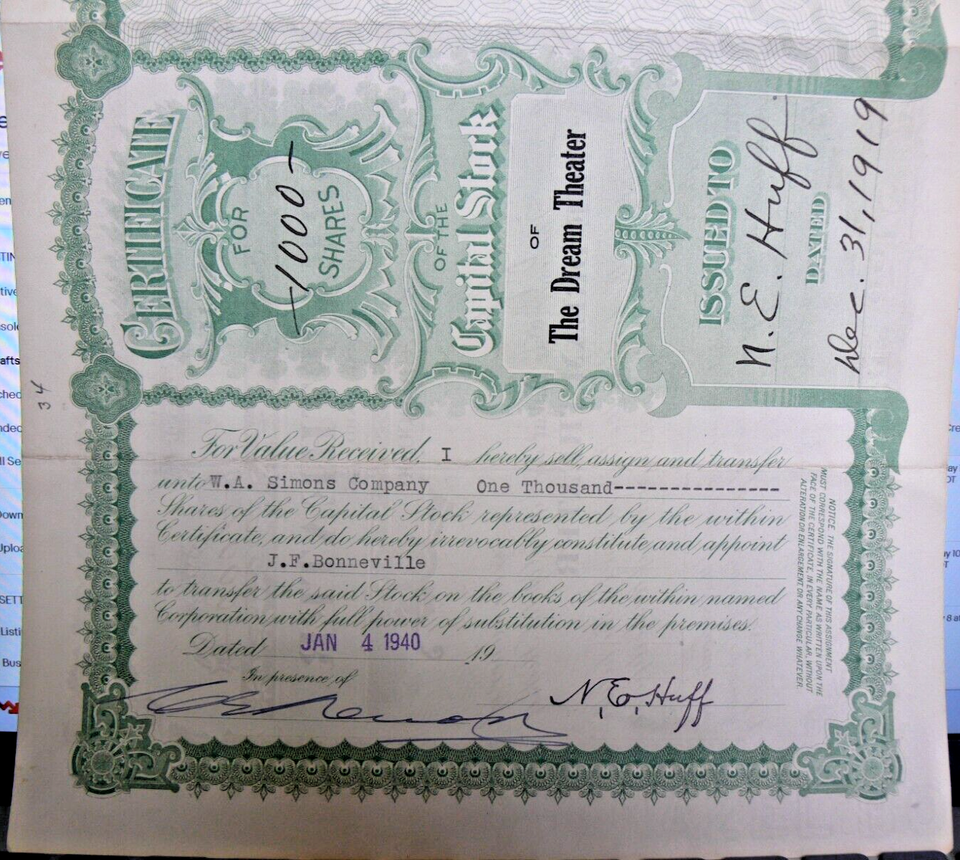 CERTIFICATE
FOR
-1000-
SHARES
OF THE
Capital Stock
OF
The Dream Theater
ISSUED TO
N. E. Huff
DATED
Dec. 31, 1919
34
For Value Received, I hereby sell, assign and transfer
unto W.A. Simons Company One Thousand---------------
Shares of the Capital Stock represented by the within
Certificate, and do hereby irrevocably constitute and appoint
J.F.Bonneville
to transfer the said Stock on the books of the within named
Corporation with full power of substitution in the premises.
Dated JAN 4 1940 19
In presence of
N. E. Huff
NOTICE. THE SIGNATURE OF THIS ASSIGNMENT
MUST CORRESPOND WITH THE NAME AS WRITTEN UPON THE
FACE OF THE CERTIFICATE, IN EVERY PARTICULAR, WITHOUT
ALTERATION OR ENLARGEMENT OR ANY CHANGE WHATEVER.